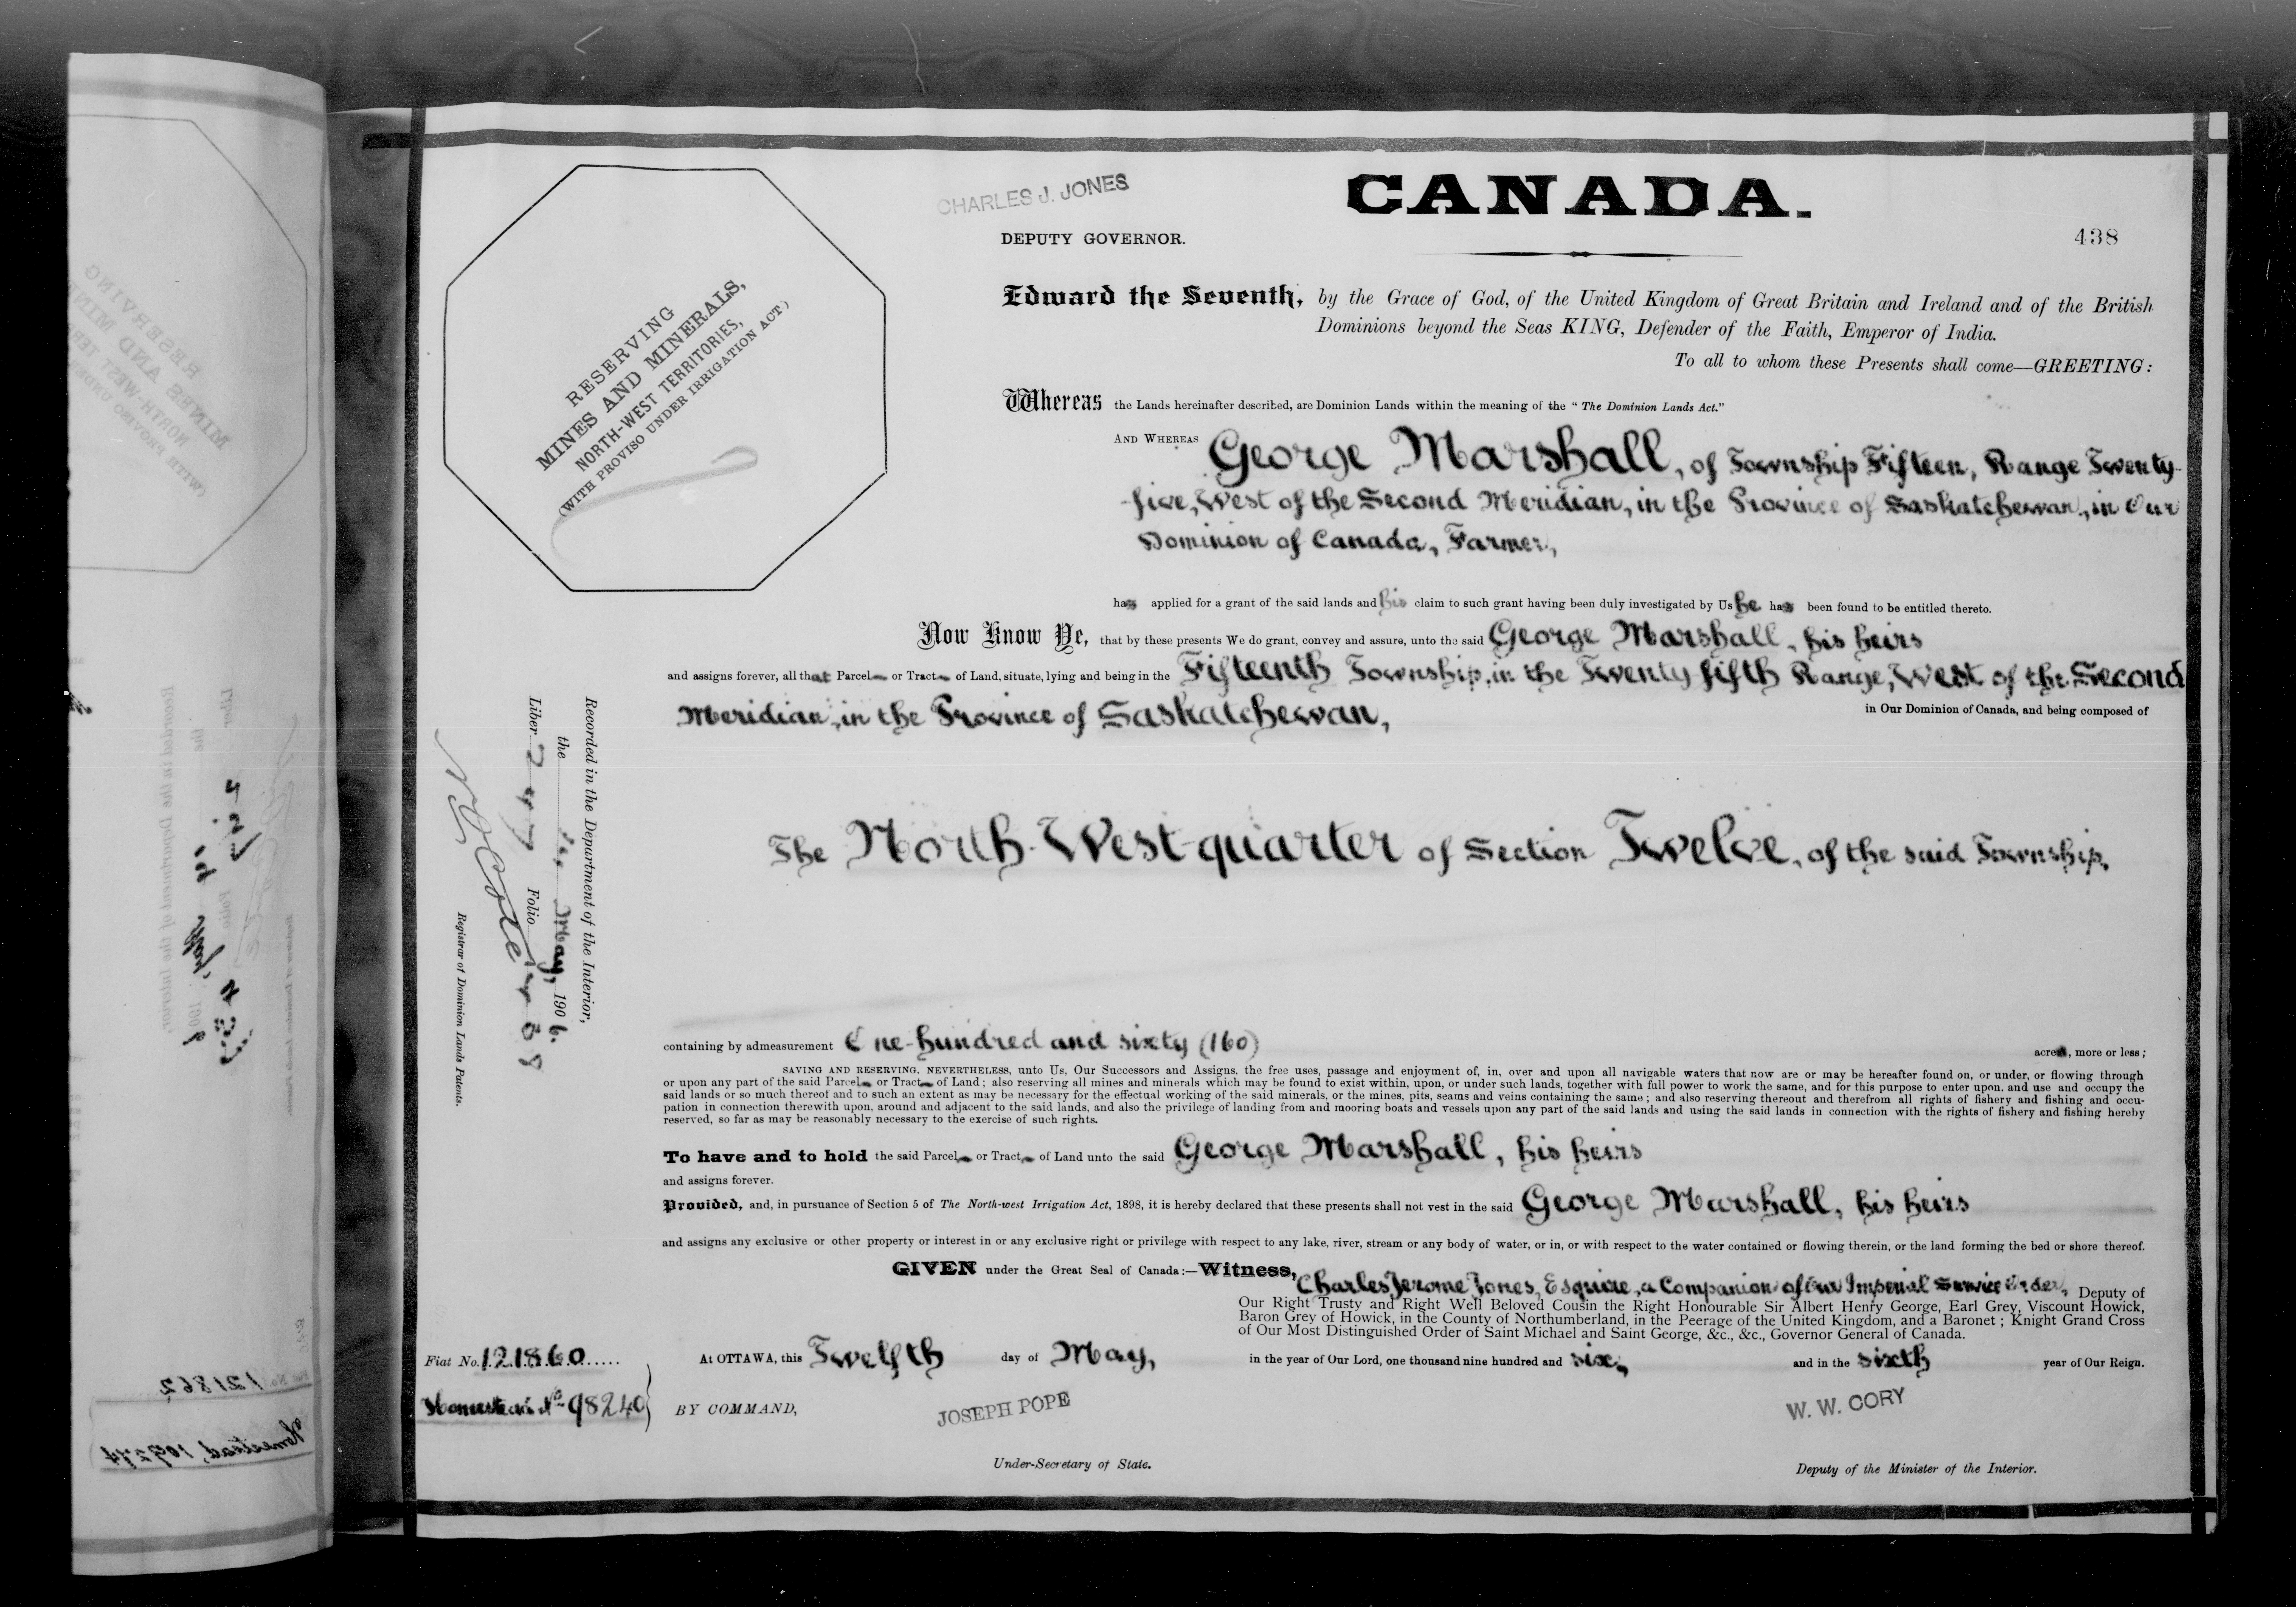 CHARLES J. JONES
CANADA.
DEPUTY GOVERNOR.
438
RESERVING
MINES AND MINERALS,
NORTH-WEST TERRITORIES,
(WITH PROVISO UNDER IRRIGATION ACT)
Edward the Seventh, by the Grace of God, of the United Kingdom of Great Britain and Ireland and of the British
Dominions beyond the Seas KING, Defender of the Faith, Emperor of India.
To all to whom these Presents shall come—GREETING:
Whereas the Lands hereinafter described, are Dominion Lands within the meaning of the "The Dominion Lands Act."
AND WHEREAS George Marshall, of Township Fifteen, Range Twenty-
five, West of the Second Meridian, in the Province of Saskatchewan, in Our
Dominion of Canada, Farmer,
has applied for a grant of the said lands and his claim to such grant having been duly investigated by Us he has been found to be entitled thereto.
Now Know Ye, that by these presents We do grant, convey and assure, unto the said George Marshall, his heirs
and assigns forever, all that Parcel or Tract of Land, situate, lying and being in the Fifteenth Township, in the Twenty fifth Range, West of the Second
Meridian, in the Province of Saskatchewan,
in Our Dominion of Canada, and being composed of
The North-West-quarter of Section Twelve, of the said Township,
Recorded in the Department of the Interior,
the May, 1906.
Liber 247 Folio
N O Coté
Registrar of Dominion Lands Patents.
containing by admeasurement One-hundred and sixty (160)
acres, more or less;
SAVING AND RESERVING, NEVERTHELESS, unto Us, Our Successors and Assigns, the free uses, passage and enjoyment of, in, over and upon all navigable waters that now are or may be hereafter found on, or under, or flowing through
or upon any part of the said Parcel or Tract of Land; also reserving all mines and minerals which may be found to exist within, upon, or under such lands, together with full power to work the same, and for this purpose to enter upon, and use and occupy the
said lands or so much thereof and to such an extent as may be necessary for the effectual working of the said minerals, or the mines, pits, seams and veins containing the same; and also reserving thereout and therefrom all rights of fishery and fishing and occu-
pation in connection therewith upon, around and adjacent to the said lands, and also the privilege of landing from and mooring boats and vessels upon any part of the said lands and using the said lands in connection with the rights of fishery and fishing hereby
reserved, so far as may be reasonably necessary to the exercise of such rights.
To have and to hold the said Parcel or Tract of Land unto the said George Marshall, his heirs
and assigns forever.
Provided, and, in pursuance of Section 5 of The North-west Irrigation Act, 1898, it is hereby declared that these presents shall not vest in the said George Marshall, his heirs
and assigns any exclusive or other property or interest in or any exclusive right or privilege with respect to any lake, river, stream or any body of water, or in, or with respect to the water contained or flowing therein, or the land forming the bed or shore thereof.
GIVEN under the Great Seal of Canada:—Witness, Charles Jerome Jones, Esquire, a Companion of Our Imperial Service Order, Deputy of
Our Right Trusty and Right Well Beloved Cousin the Right Honourable Sir Albert Henry George, Earl Grey, Viscount Howick,
Baron Grey of Howick, in the County of Northumberland, in the Peerage of the United Kingdom, and a Baronet; Knight Grand Cross
of Our Most Distinguished Order of Saint Michael and Saint George, &c., &c., Governor General of Canada.
Fiat No. 121860
At OTTAWA, this Twelfth day of May, in the year of Our Lord, one thousand nine hundred and six, and in the sixth year of Our Reign.
Homestead No 98240
BY COMMAND,
JOSEPH POPE
W. W. CORY
Under-Secretary of State.
Deputy of the Minister of the Interior.